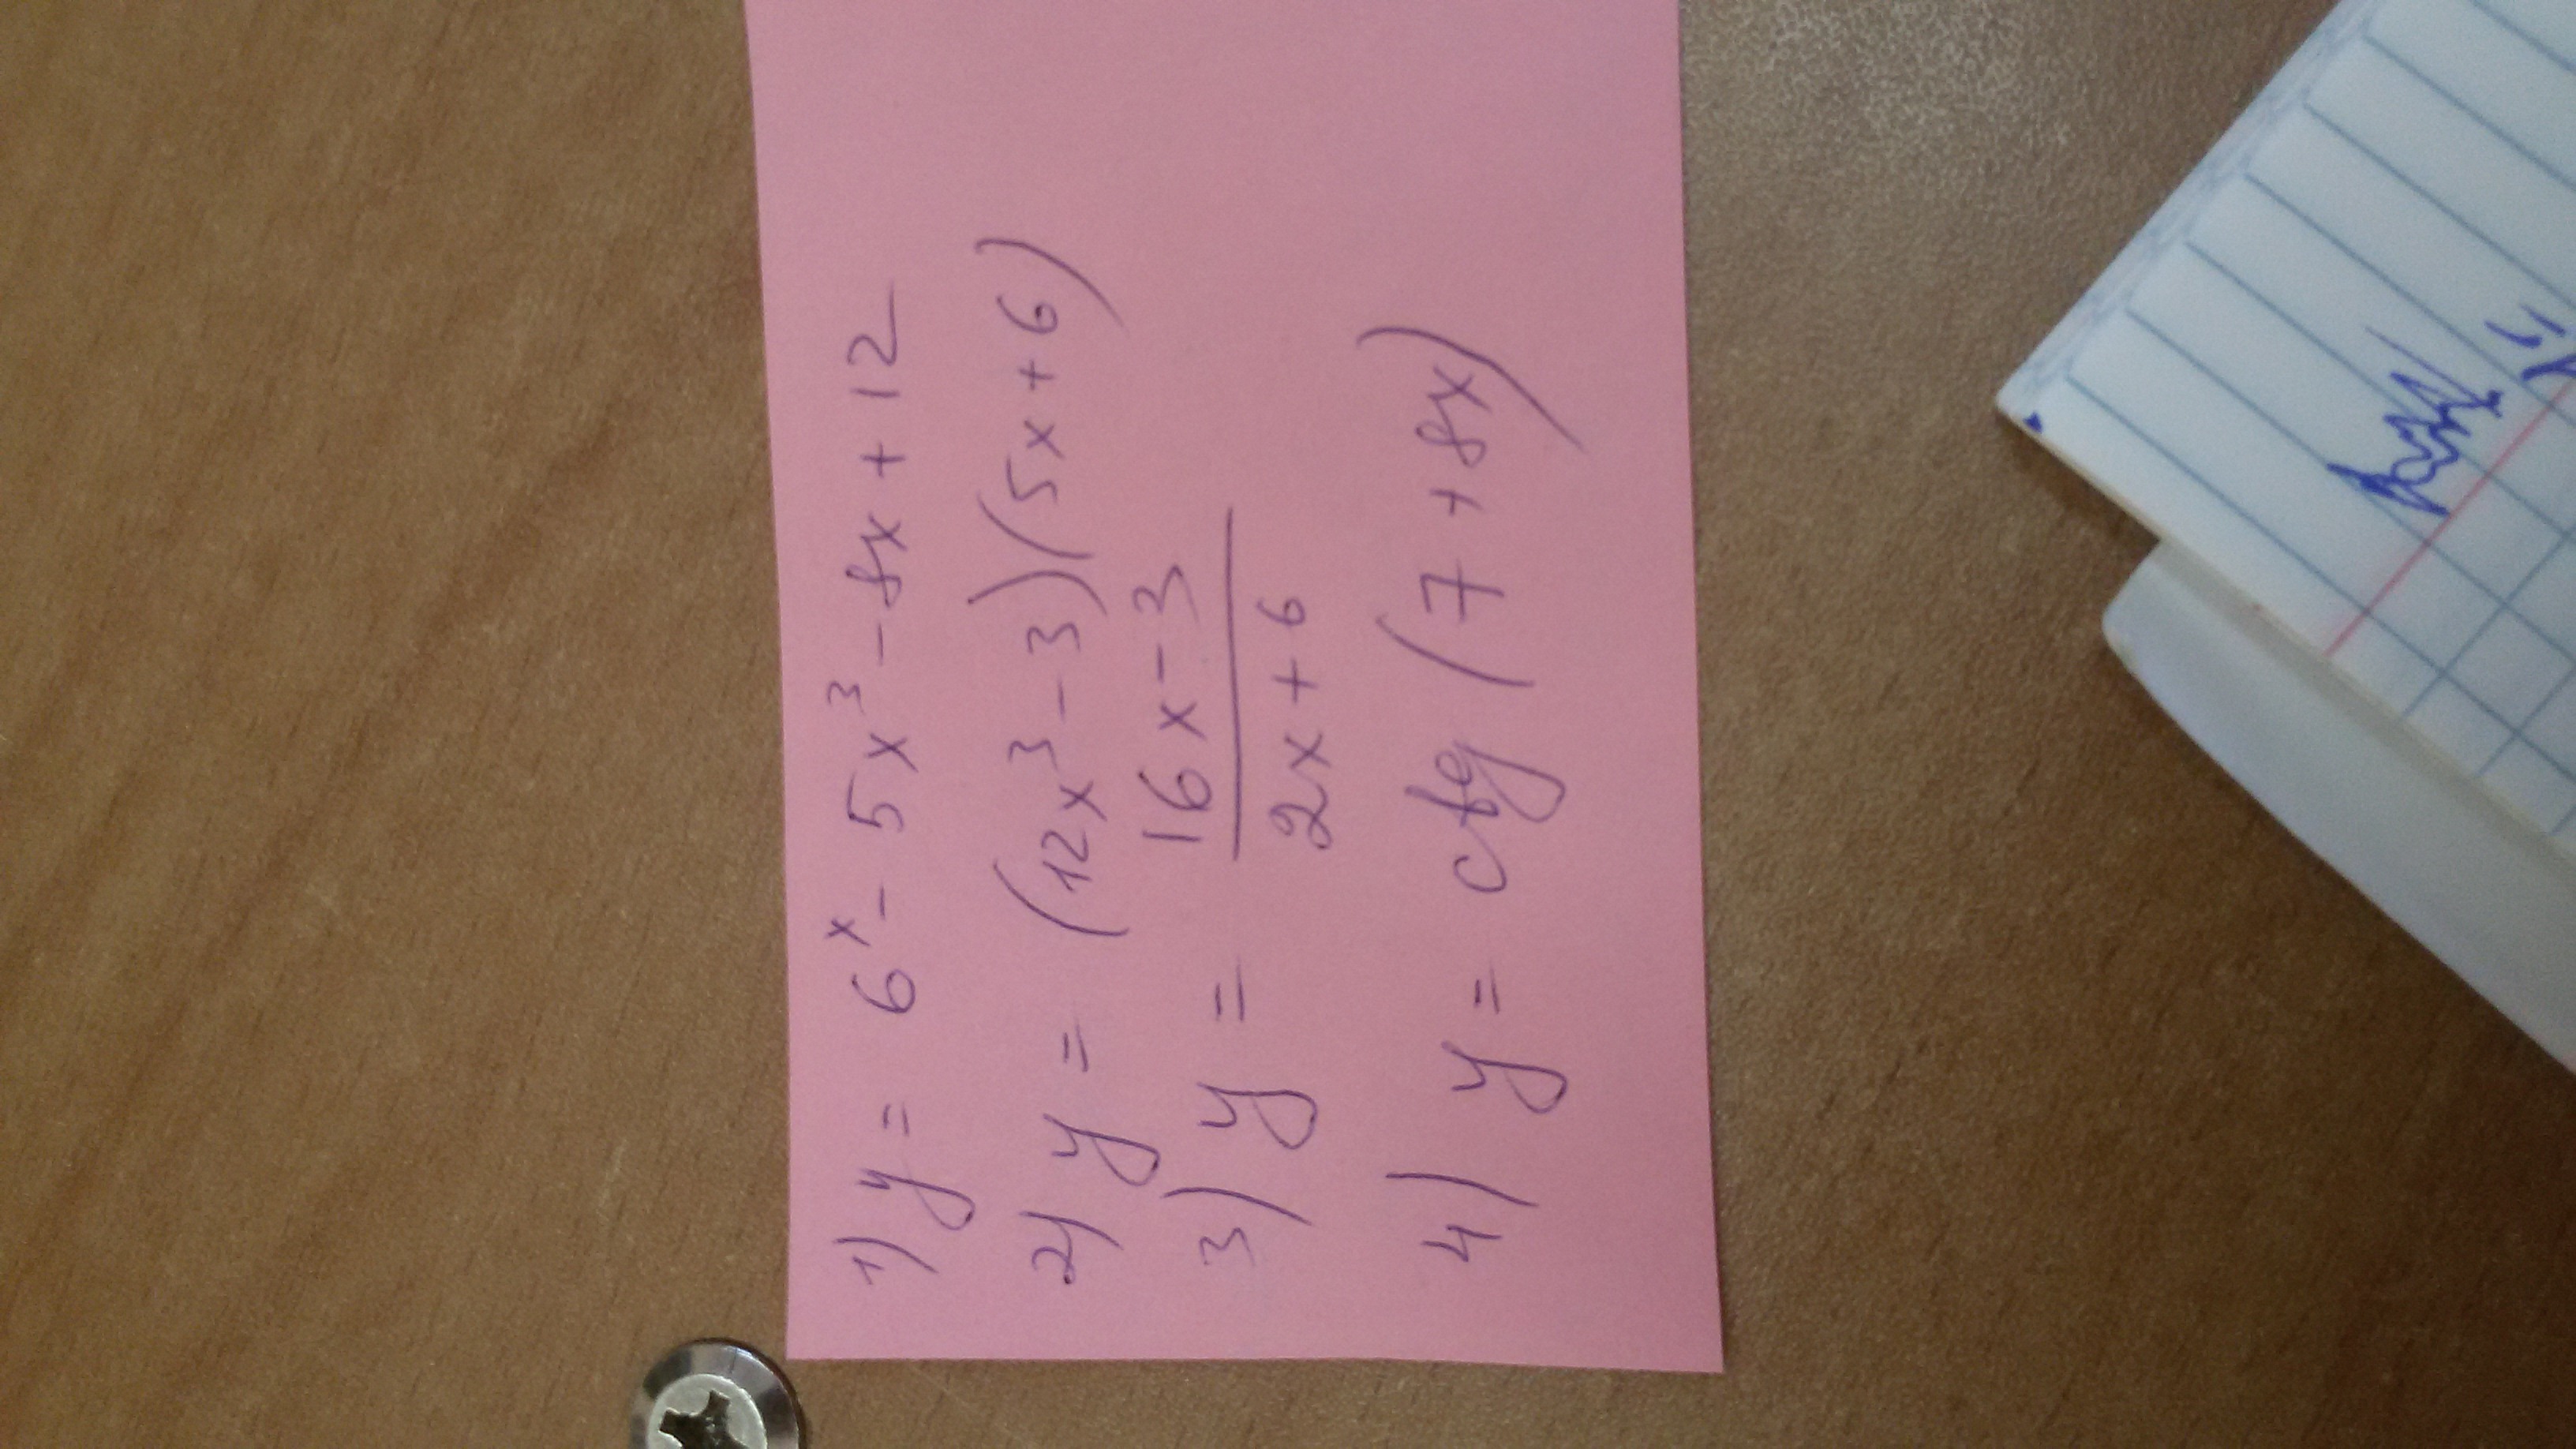 1) y = 6ˣ - 5x³ - 8x + 12
2) y = (12x³ - 3)(5x + 6)
3) y = (16x - 3)/(2x + 6)
4) y = ctg (7 + 8x)